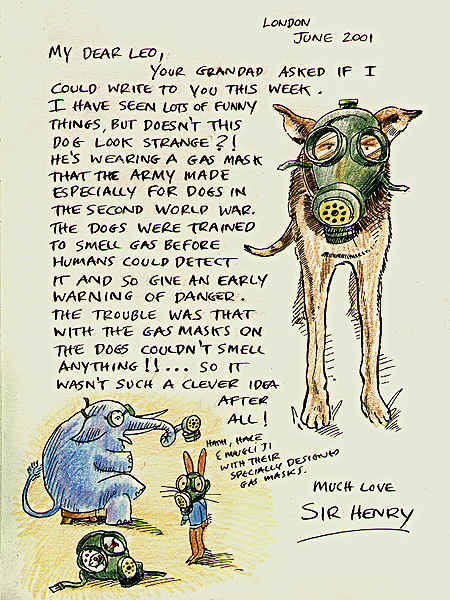 LONDON
JUNE 2001
MY DEAR LEO,
YOUR GRANDAD ASKED IF I
COULD WRITE TO YOU THIS WEEK.
I HAVE SEEN LOTS OF FUNNY
THINGS, BUT DOESN'T THIS
DOG LOOK STRANGE?!
HE'S WEARING A GAS MASK
THAT THE ARMY MADE
ESPECIALLY FOR DOGS IN
THE SECOND WORLD WAR.
THE DOGS WERE TRAINED
TO SMELL GAS BEFORE
HUMANS COULD DETECT
IT AND SO GIVE AN EARLY
WARNING OF DANGER.
THE TROUBLE WAS THAT
WITH THE GAS MASKS ON
THE DOGS COULDN'T SMELL
ANYTHING!!... SO IT
WASN'T SUCH A CLEVER IDEA
AFTER
ALL!
HATHI, HARE
& MAUGLI JI
WITH THEIR
SPECIALLY DESIGNED
GAS MASKS.
MUCH LOVE
SIR HENRY